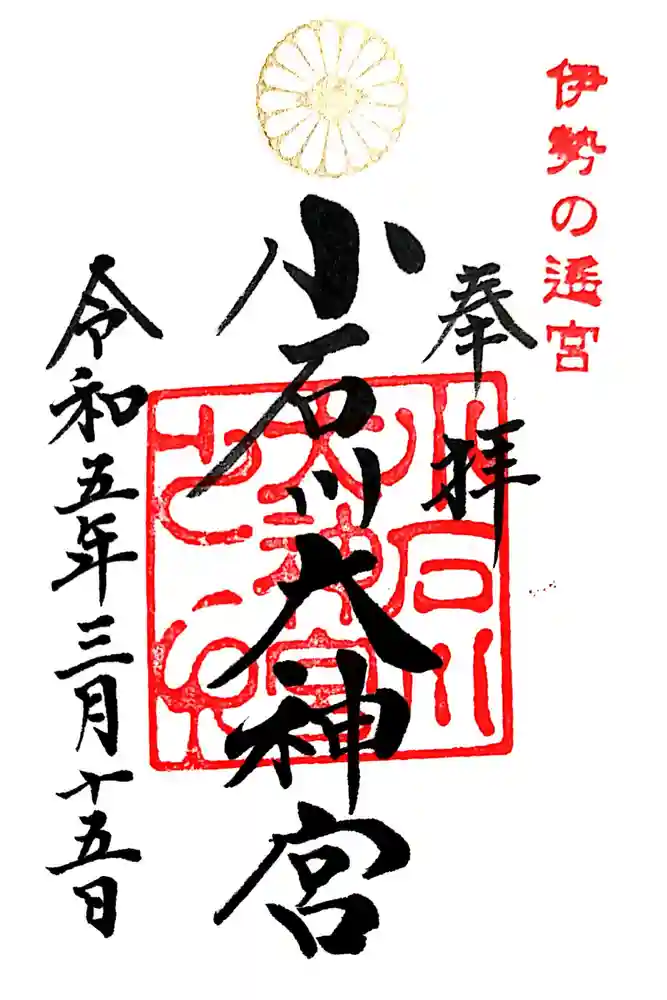 伊勢の遥宮
奉拝
小石川大神宮
小石川
大神宮
之印
令和五年三月十五日